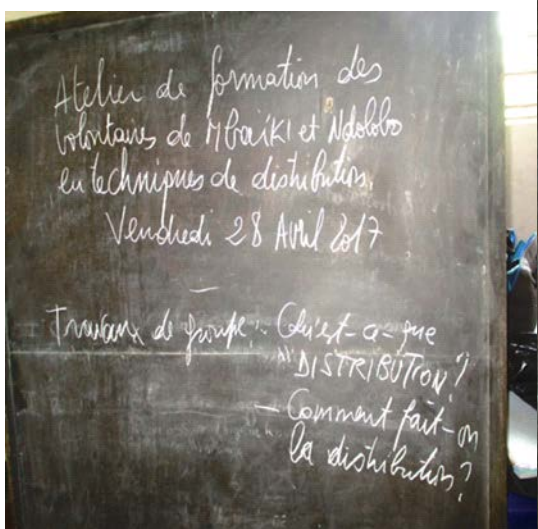 Atelier de formation des
volontaires de MbaïKI et Ndolobo
en techniques de distribution.
Vendredi 28 Avril 2017
Travaux de groupe : - Qu'est-ce-que
"DISTRIBUTION"?
- Comment fait-on
la distribution?